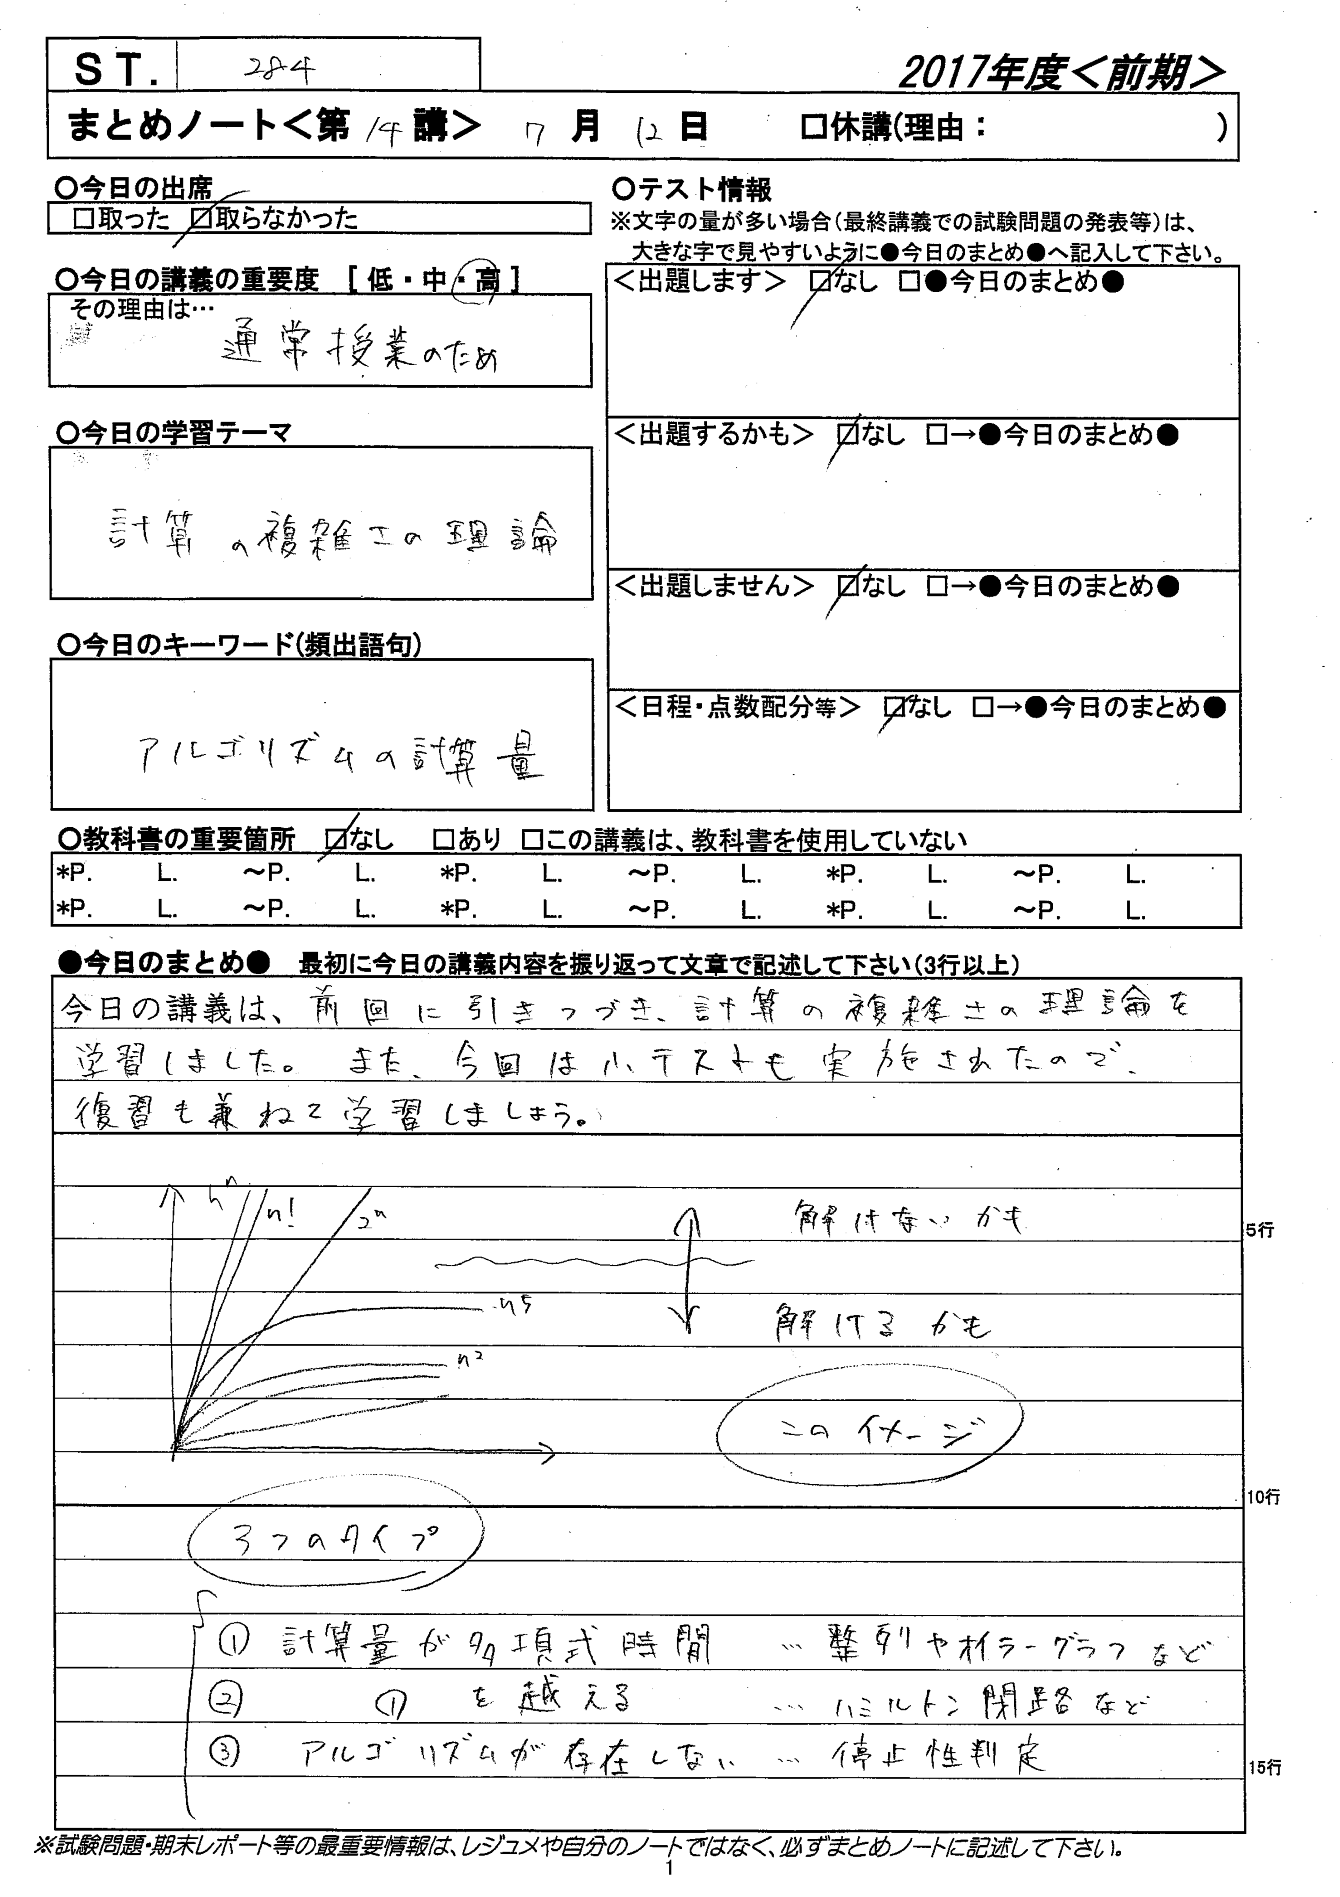 ST. 284
2017年度<前期>
まとめノート<第14講> 7月12日 □休講(理由: )
○今日の出席
□取った ☑取らなかった
○今日の講義の重要度 [低・中・高]
その理由は…
通常授業のため
○今日の学習テーマ
計算の複雑さの理論
○今日のキーワード(頻出語句)
アルゴリズムの計算量
○テスト情報
※文字の量が多い場合(最終講義での試験問題の発表等)は、
大きな字で見やすいように●今日のまとめ●へ記入して下さい。
<出題します> ☑なし □●今日のまとめ●
<出題するかも> ☑なし □→●今日のまとめ●
<出題しません> ☑なし □→●今日のまとめ●
<日程・点数配分等> ☑なし □→●今日のまとめ●
○教科書の重要箇所 ☑なし □あり □この講義は、教科書を使用していない
*P. L. ~P. L. *P. L. ~P. L. *P. L. ~P. L.
*P. L. ~P. L. *P. L. ~P. L. *P. L. ~P. L.
●今日のまとめ● 最初に今日の講義内容を振り返って文章で記述して下さい(3行以上)
今日の講義は、前回に引きつづき、計算の複雑さの理論を
学習しました。また、今回は小テストも実施されたので、
復習も兼ねて学習しましょう。
nⁿ n! 2ⁿ
解けないかも
5行
n⁵
解けるかも
n²
このイメージ
10行
3つのタイプ
① 計算量が多項式時間 … 整列やオイラーグラフなど
② ①を越える … ハミルトン閉路など
③ アルゴリズムが存在しない … 停止性判定
15行
※試験問題・期末レポート等の最重要情報は、レジュメや自分のノートではなく、必ずまとめノートに記述して下さい。
1